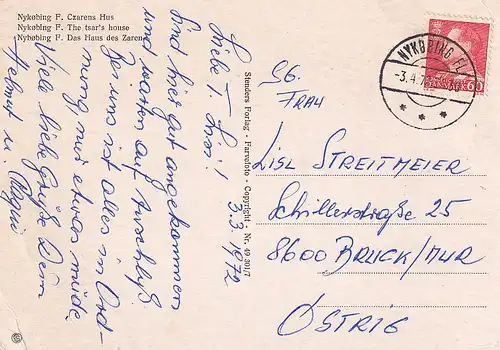 Nykøbing F. Czarens Hus
Nykøbing F. The tsar's house
Nykøbing F. Das Haus des Zaren
3.3.1972
Liebe T. Lisi!
Sind hier gut angekommen
und warten auf Anschluß.
Bei uns ist alles in Ord-
nung, nur etwas müde.
Viele liebe Grüße Dein
Helmut u.
Stenders Forlag - Farvefoto - Copyright - Nr. 49 301/7
NYKØBING FL.
-3.4.72
DANMARK 60
Frau
LISL STREITMEIER
Schillerstraße 25
8600 BRUCK/MUR
ÖSTRIG